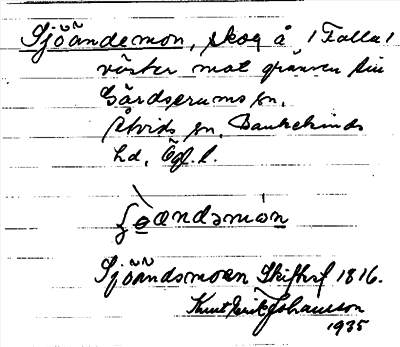 Sjöändemon, skog å /Falla/
väster mot gränsen till
Gärdserums sn,
Åtvids sn, Bankekinds
hd, Ögl. l.
Sjöändsmoen Skifteskf 1816.
Knut Erik Johansson
1935